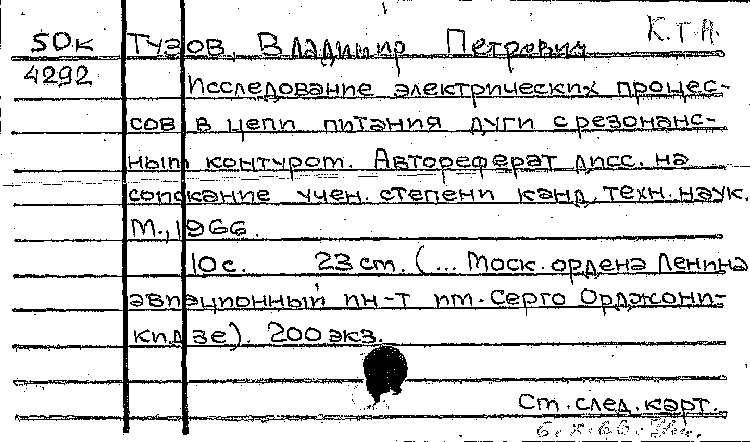 К.Т.Н.
50к Тузов, Владимир Петрович
4292
Исследование электрических процес-
сов в цепи питания дуги с резонанс-
ным контуром. Автореферат дисс. на
соискание учен. степени канд. техн. наук.
М., 1966.
10 с. 23 см. (... Моск. ордена Ленина
авиационный ин-т им. Серго Орджони-
кидзе). 200 экз.
См. след. карт.